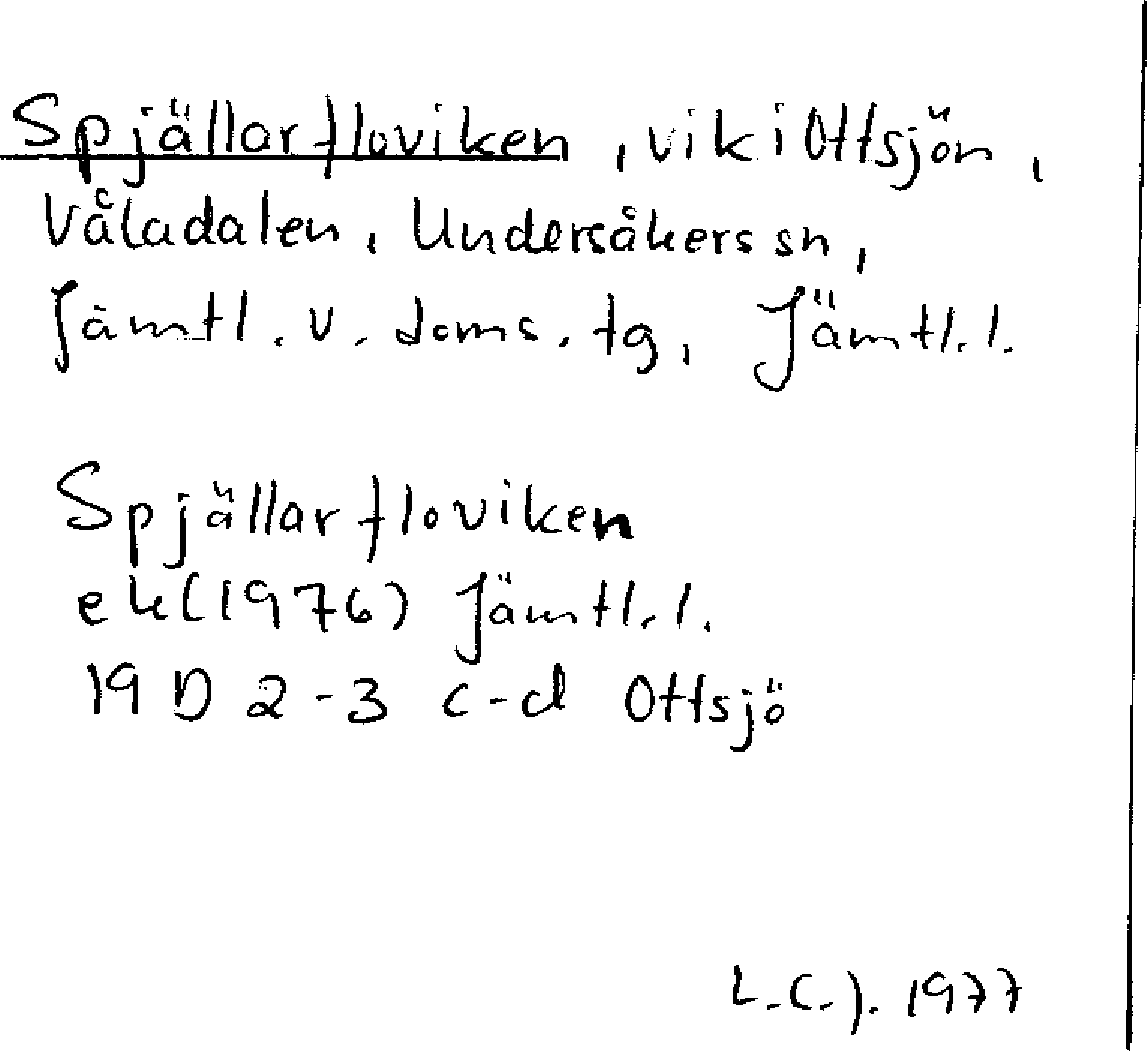 Spjällarfloviken, vik i Ottsjön,
Våladalen, Undersåkers sn,
Jämtl. v. doms. tg, Jämtl. l.
Spjällarfloviken
ek (1976) Jämtl. l.
19 D 2-3 c-d Ottsjö
L.C.J. 1977